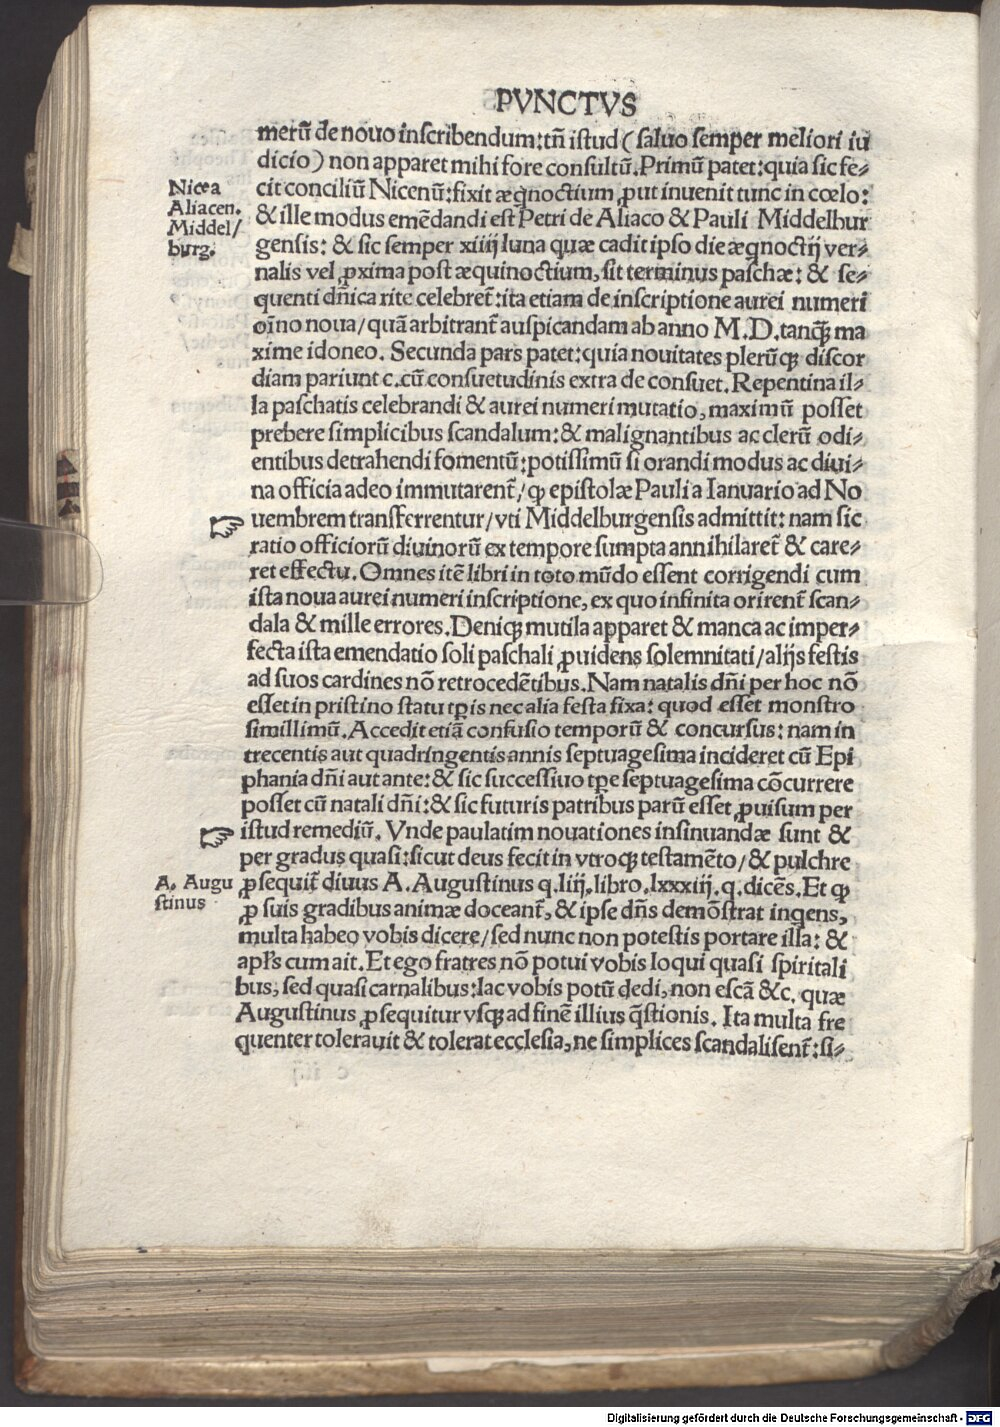 PVNCTVS
merũ de nouo inscribendum: tñ istud (saluo semper meliori iu
dicio) non apparet mihi fore consultũ. Primũ patet: quia sic fe⸗
cit conciliũ Nicenũ: fixit æq̃noctium ꝓut inuenit tunc in cœlo:
& ille modus emẽdandi est Petri de Aliaco & Pauli Middelbur
gensis: & sic semper xiiij luna quæ cadit ipso die æq̃noctij ver⸗
nalis vel ꝓxima post æquinoctium, sit terminus paschæ: & se⸗
quenti dñica rite celebret̃: ita etiam de inscriptione aurei numeri
oĩno noua/ quã arbitrant̃ auspicandam ab anno M.D. tanq̃ꝫ ma
xime idoneo. Secunda pars patet: quia nouitates plerũqꝫ discor
diam pariunt c. cũ consuetudinis extra de consuet. Repentina il⸗
la paschatis celebrandi & aurei numeri mutatio, maximũ posset
prebere simplicibus scandalum: & malignantibus ac clerũ odi⸗
entibus detrahendi fomentũ: potissimũ si orandi modus ac diui⸗
na officia adeo immutarent̃/ ꝙ epistolæ Pauli a Ianuario ad No
uembrem transferrentur/ vti Middelburgensis admittit: nam sic
ratio officiorũ diuinorũ ex tempore sumpta annihilaret̃ & care⸗
ret effectu. Omnes itẽ libri in toto mũdo essent corrigendi cum
ista noua aurei numeri inscriptione, ex quo infinita orirent̃ scan⸗
dala & mille errores. Deniqꝫ mutila apparet & manca ac imper⸗
fecta ista emendatio soli paschali ꝓuidens solemnitati/ alijs festis
ad suos cardines nõ retrocedẽtibus. Nam natalis dñi per hoc nõ
esset in pristino statu tp̃is nec alia festa fixa: quod esset monstro
simillimũ. Accedit etiã confusio temporũ & concursus: nam in
trecentis aut quadringentis annis septuagesima incideret cũ Epi
phania dñi aut ante: & sic successiuo tp̃e septuagesima cõcurrere
posset cũ natali dñi: & sic futuris patribus parũ esset ꝓuisum per
istud remediũ. Vnde paulatim nouationes insinuandæ sunt &
per gradus quasi: sicut deus fecit in vtroqꝫ testamẽto/ & pulchre
ꝓsequit̃ diuus A. Augustinus q. liij. libro. lxxxiij. q. dicẽs. Et ꝙ
ꝓ suis gradibus animæ doceant̃, & ipse dñs demõstrat inqens,
multa habeo vobis dicere/ sed nunc non potestis portare illa: &
apl̃s cum ait. Et ego fratres nõ potui vobis loqui quasi spiritali
bus, sed quasi carnalibus: lac vobis potũ dedi, non escã &c. quæ
Augustinus ꝓsequitur vsqꝫ ad finẽ illius q̃stionis. Ita multa fre
quenter tolerauit & tolerat ecclesia, ne simplices scandalisent̃: si⸗
Nicea
Aliacen.
Middel/
burg.
A. Augu
stinus
Digitalisierung gefördert durch die Deutsche Forschungsgemeinschaft - DFG